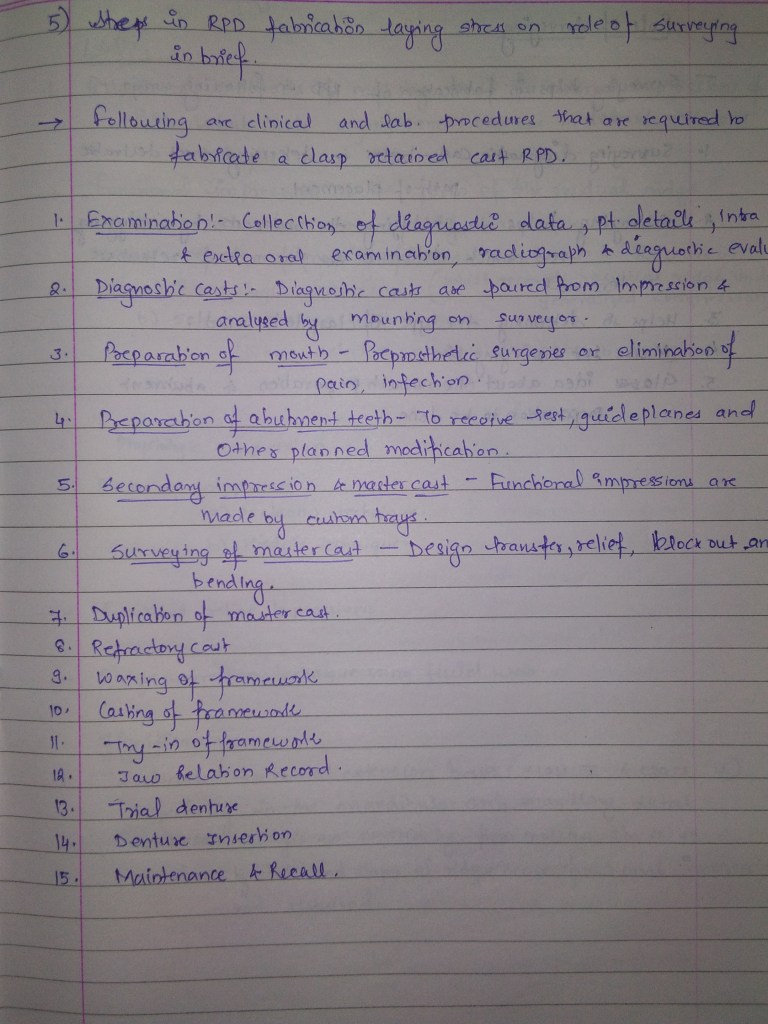 5) Steps in RPD fabrication laying stress on role of surveying
in brief.
→ Following are clinical and lab. procedures that are required to
fabricate a clasp retained cast RPD.
1. Examination:- Collection of diagnostic data, pt. details, intra
& extra oral examination, radiograph & diagnostic evalu
2. Diagnostic casts:- Diagnostic casts are poured from Impression &
analysed by mounting on surveyor.
3. Preparation of mouth - Preprosthetic surgeries or elimination of
pain, infection.
4. Preparation of abutment teeth- To receive rest, guideplanes and
Other planned modification.
5. Secondary impression & master cast - Functional impressions are
made by custom trays.
6. Surveying of master cast - Design transfer, relief, block out an
bending.
7. Duplication of master cast.
8. Refractory cast
9. Waxing of framework
10. Casting of framework
11. Try-in of framework
12. Jaw Relation Record.
13. Trial denture
14. Denture Insertion
15. Maintenance & Recall.